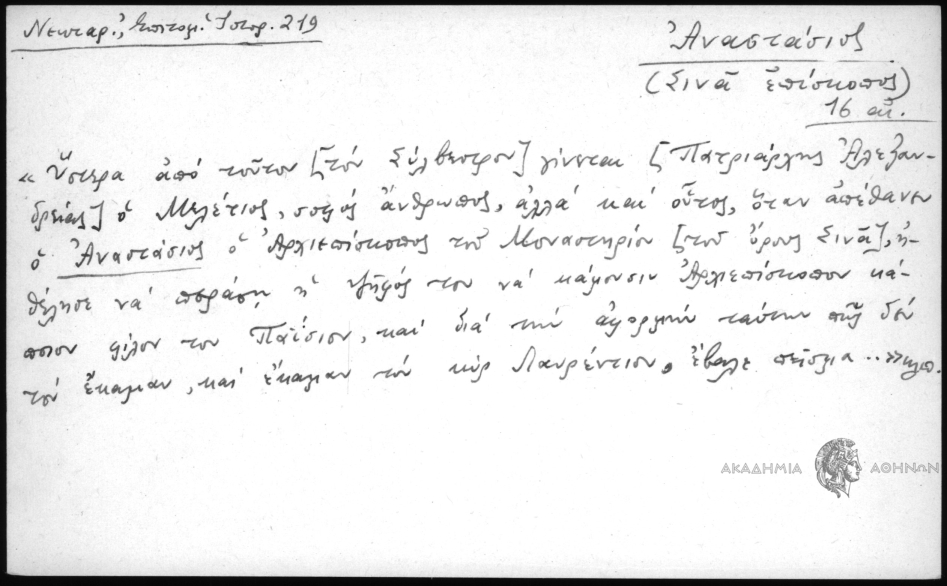 Νεκταρ., Ἐπιτομ. Ἱστορ. 219
Ἀναστάσιος
(Σινᾶ ἐπίσκοπος)
16 αἰ.
« Ὕστερα ἀπό τοῦτον [τόν Σύλβεστρον] γίνεται [Πατριάρχης Ἀλεξαν-
δρείας] ὁ Μελέτιος, σοφός ἄνθρωπος, ἀλλά καί οὗτος, ὅταν ἀπέθανεν
ὁ Ἀναστάσιος ὁ Ἀρχιεπίσκοπος τοῦ Μοναστηρίου [τοῦ ὄρους Σινᾶ], ἠ-
θέλησε νά περάσῃ ἡ ψῆφός του νά κάμουσιν Ἀρχιεπίσκοπον κά-
ποιον φίλον του Παΐσιον, καί διά τήν ἀφορμήν ταύτην πῶς δέν
τόν ἔκαμαν, καί ἔκαμαν τόν κύρ Λαυρέντιον, ἔβαλε πεῖσμα ..» κλπ.
ΑΚΑΔΗΜΙΑ ΑΘΗΝΩΝ